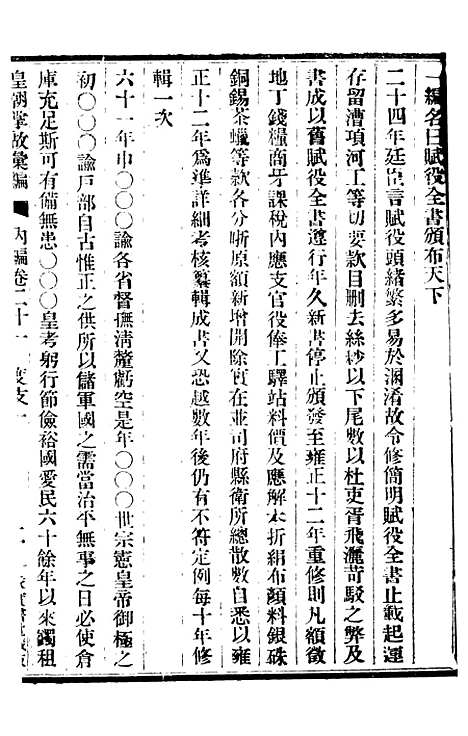 一編名曰賦役全書頒布天下
二十四年廷臣言賦役頭緒繁多易於溷淆故令修簡明賦役全書止載起運
存留漕項河工等切要款目刪去絲紗以下尾數以杜吏胥飛灑苛駁之弊及
書成以舊賦役全書遵行年久新書停止頒發至雍正十二年重修則凡額徵
地丁錢糧商牙課稅內應支官役俸工驛站料價及應解本折絹布顏料銀硃
銅錫茶蠟等款各分晰原額新增開除實在並司府縣衛所總散數目悉以雍
正十二年為準詳細考核纂輯成書又恐越數年後仍有不符定例每十年修
輯一次
六十一年申〇〇〇諭各省督撫淸釐虧空是年〇〇〇世宗憲皇帝御極之
初〇〇〇諭戶部自古惟正之供所以儲軍國之需當治平無事之日必使倉
庫充足斯可有備無患〇〇〇皇考躬行節儉裕國愛民六十餘年以來蠲租
皇朝掌故彙編 內編卷二十一 度支一